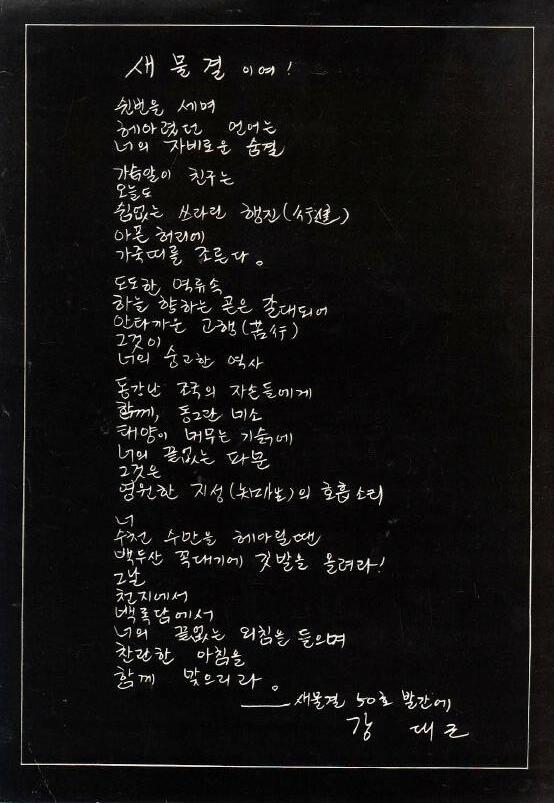 새물결 이여!
쉰번을 세며
헤아렸던 언어는
너의 자비로운 숨결
가슴앓이 친구는
오늘도
쉼없는 쓰라린 행진(行進)
아픈 허리에
가죽띠를 조른다.
도도한 역류속
하늘 향하는 곧은 갈대되어
안타까운 고행(苦行)
그것이
너의 숭고한 역사
동강난 조국의 자손들에게
함께, 동그란 미소
태양이 머무는 기슭에
너의 끝없는 파문
그것은
영원한 지성(知性)의 호흡소리
너
수천 수만을 헤아릴땐
백두산 꼭대기에 깃발을 올려라!
그날
천지에서
백록담에서
너의 끝없는 외침을 들으며
찬란한 아침을
함께 맞으리라.
새물결 50호 발간에
강 대